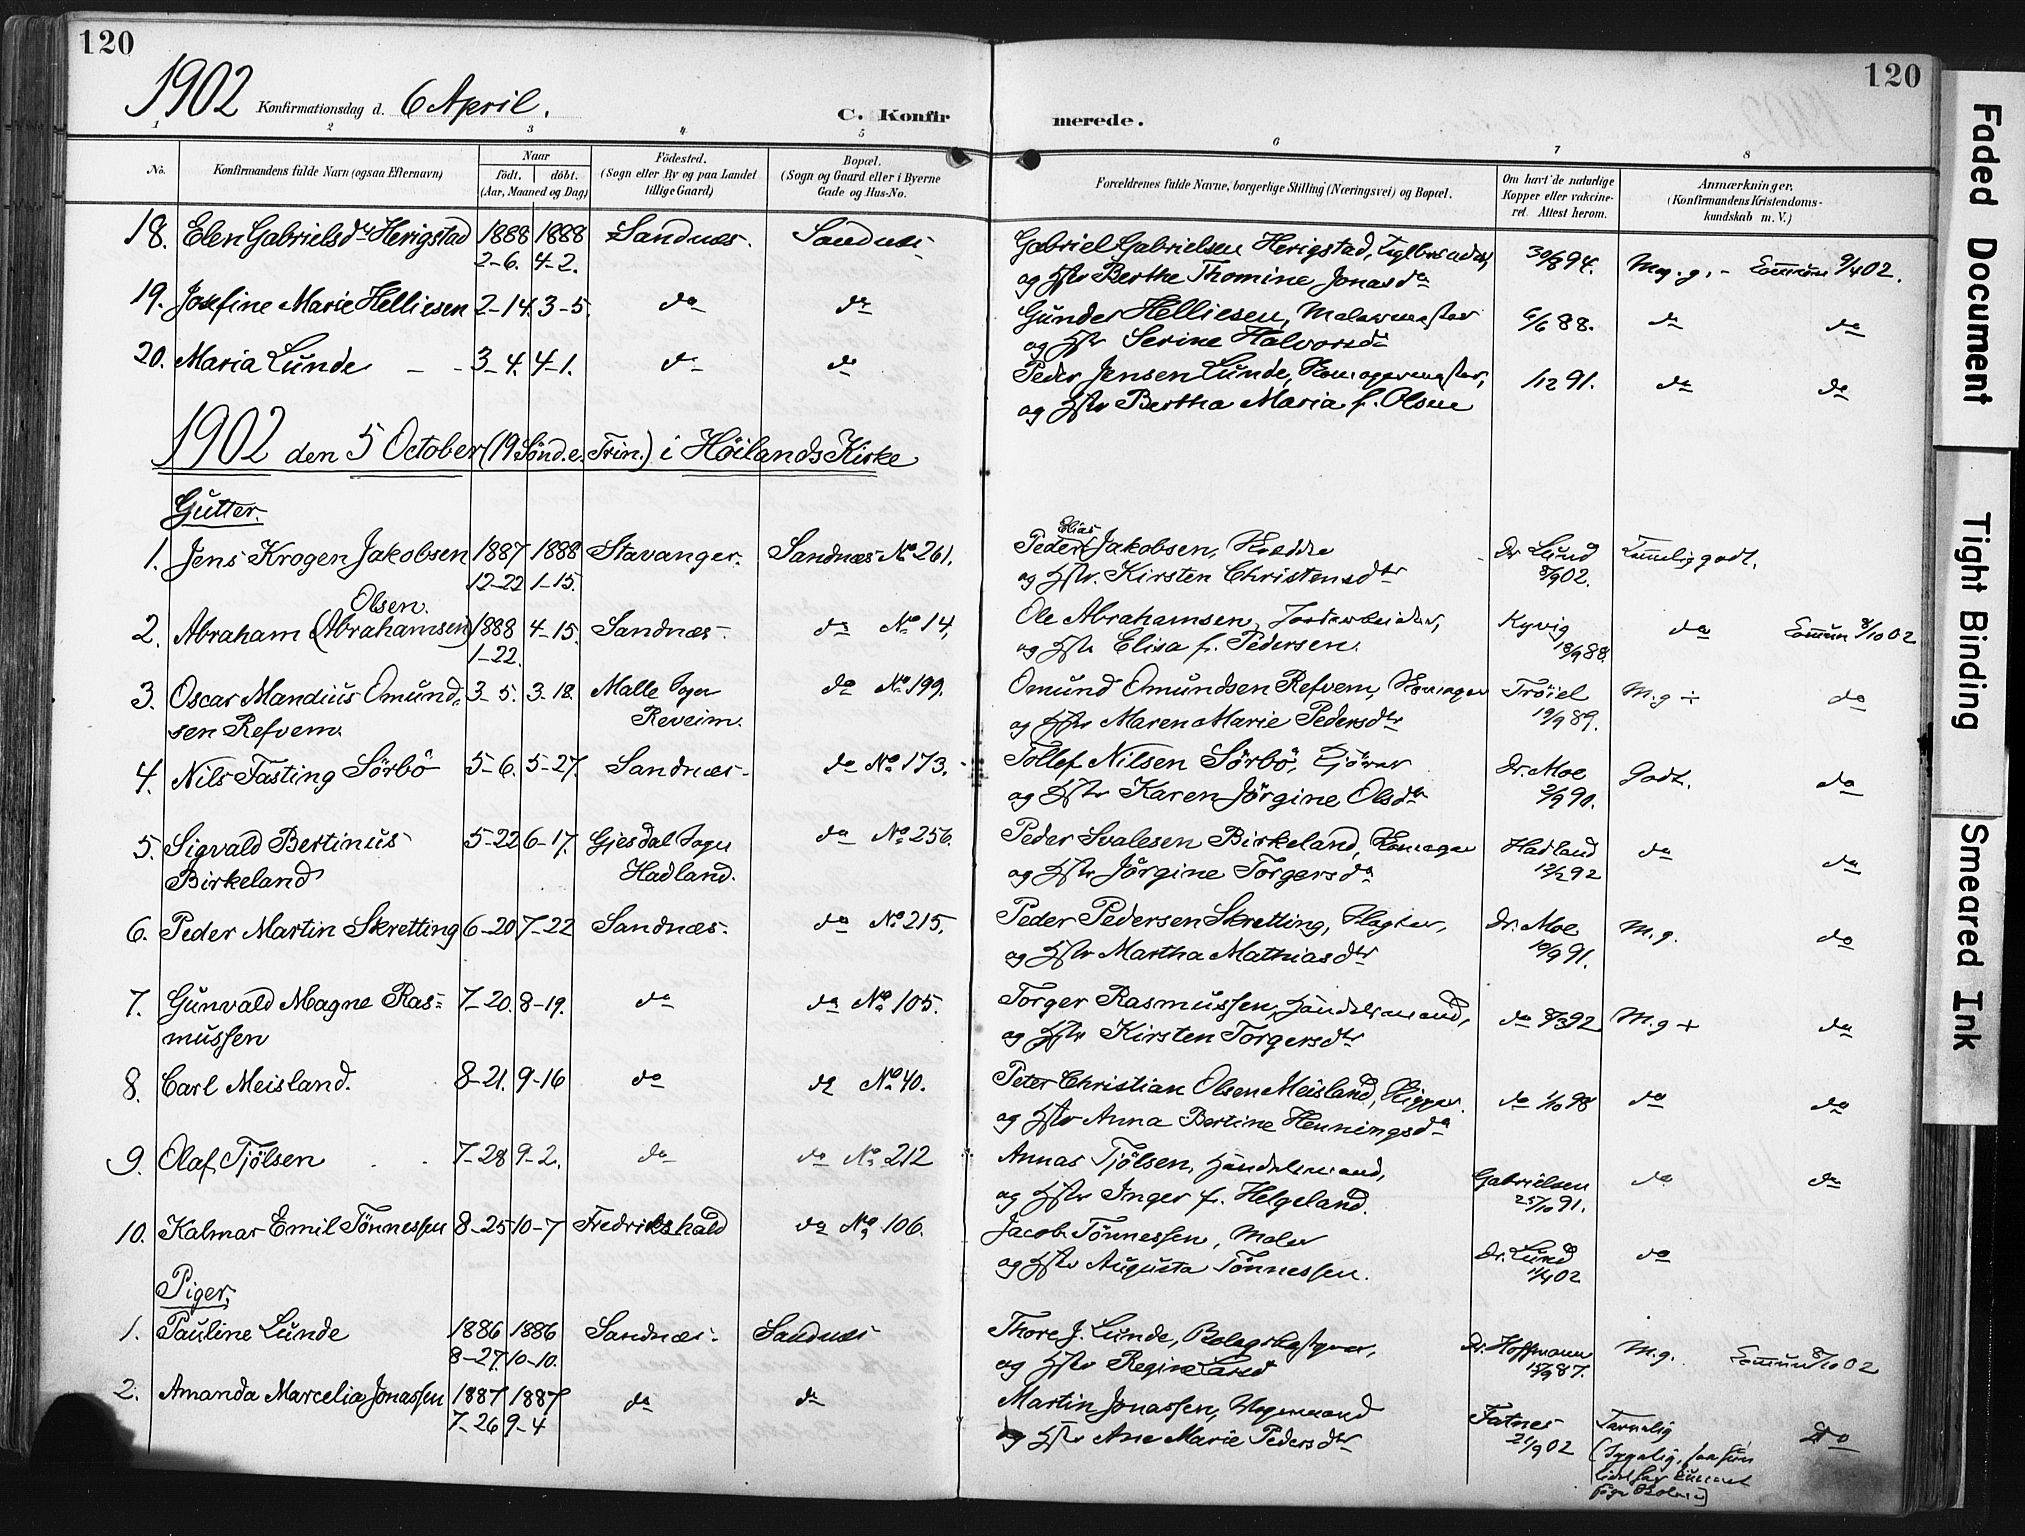 120
120
1902 Konfirmationsdag d. 6 April.
C. Konfirmerede.
1 2 3 4 5 6 7 8
No. Konfirmandens fulde Navn (ogsaa Efternavn) Naar födt. döbt. (Aar, Maaned og Dag) Födested. (Sogn eller By og paa Landet tillige Gaard) Bopæl. (Sogn og Gaard eller i Byerne Gade og Hus-No. Forældrenes fulde Navne, borgerlige Stilling (Næringsvei) og Bopæl. Om havt de naturlige Kopper eller vakcineret. Attest herom. Anmærkninger. (Konfirmandens Kristendomskundskab m. V.)
18. Elen Gabrielsdr Herigstad 1888 1888 Sandnæs. Sandnæs Gabriel Gabrielsen Herigstad, 30/8 94. Mg. g. - Commun 9/4 02.
2-6. 4-2. og Hstr Berthe Thomine Jonasda
19. Josefine Marie Helliesen 2-14. 3-5. do do Gunder Helliesen, Malermester 6/6 88. do do
og Hstr Serine Halvorsda
20. Maria Lunde - - 3-4. 4-1. do do Peder Jensen Lunde, 1/12 91. do do
og Hstr Bertha Maria f. Olsen
1902 den 5 October (19 Sönd. e. Trin.) i Höilands Kirke
Gutter.
1. Jens Krogen Jakobsen 1887 1888 Stavanger. Sandnæs No 261. Peder Elias Jakobsen, Kræmmer Dr Lund Temmelig godt.
12-22 1-15. og Hstr. Kirsten Christensdtr 8/9 02.
Olsen.
2. Abraham (Abrahamsen) 1888 4-15. Sandnæs. do No 14. Ole Abrahamsen, Kyvig do Commun 8/10 02
1-22. og Hstr Elisa f. Pedersen. 18/9 88.
3. Oscar Mandius Omund- 3-5. 3-18. Malle Sogn do No 199. Omund Omundsen Refvem, Tröiel M.g ÷ do
sen Refvem. Reveim. og Hstr Maren Marie Pedersdtr 19/9 89.
4. Nils Fasting Sörbö 5-6. 5-27. Sandnæs. do No 173. Tollef Nilsen Sörbö, Kjörer Dr. Moe Godt. do
og Hstr Karen Jörgine Olsda 2/9 90.
5. Sigvald Bertinius 5-22 6-17. Gjesdal Sogn do No 256. Peder Svalesen Birkeland, Hadland do do
Birkeland Hadland. og Hstr Jörgine Torgersda 12/2 92
6. Peder Martin Skretting 6-20 7-22 Sandnæs. do No 215. Peder Pedersen Skretting, Slagter, Dr. Moe M.g. do
og Hstr Martha Mathiasdtr 10/9 91.
7. Gunvald Magne Ras- 7-20. 8-19. do do No 105. Torger Rasmussen, Handelsmand, do 8/3 92 M.g + do
mussen og Hstr Kirsten Torgersdtr
8. Carl Meisland. 8-21. 9-16 do do No 40. Peter Christian Olsen Meisland, Skipper. do 1/10 98 do do
og Hstr Anna Bertine Henningsda
9. Olaf Tjölsen 7-28 9-2. do do No. 212 Annas Tjölsen, Handelsmand, Gabrielsen do do
og Hstr Inger f. Helgeland. 25/10 91.
10. Kalmar Emil Tönnessen 8-25 10-7 Fredrikshald do No 106. Jacob Tönnessen, Maler Dr. Lund do
og Hstr Augusta Tönnessen. 1/4 02
Piger.
1. Pauline Lunde 1886 1886 Sandnæs. Sandnæs Thore J. Lunde, Dr. Hoffmann M.g. Commun 8/10 02
8-27. 10-10. og Hstr Regine Larsd 15/9 87.
2. Amanda Marcelia Jonassen 1887 1887 do do Martin Jonassen, Vognmand Fatnes Tarvelig Do
7-26 9-4 og Hstr Ane Marie Pedersdtr 21/9 02 (Sygelig,
Faded Document
Tight Binding
Smeared Ink